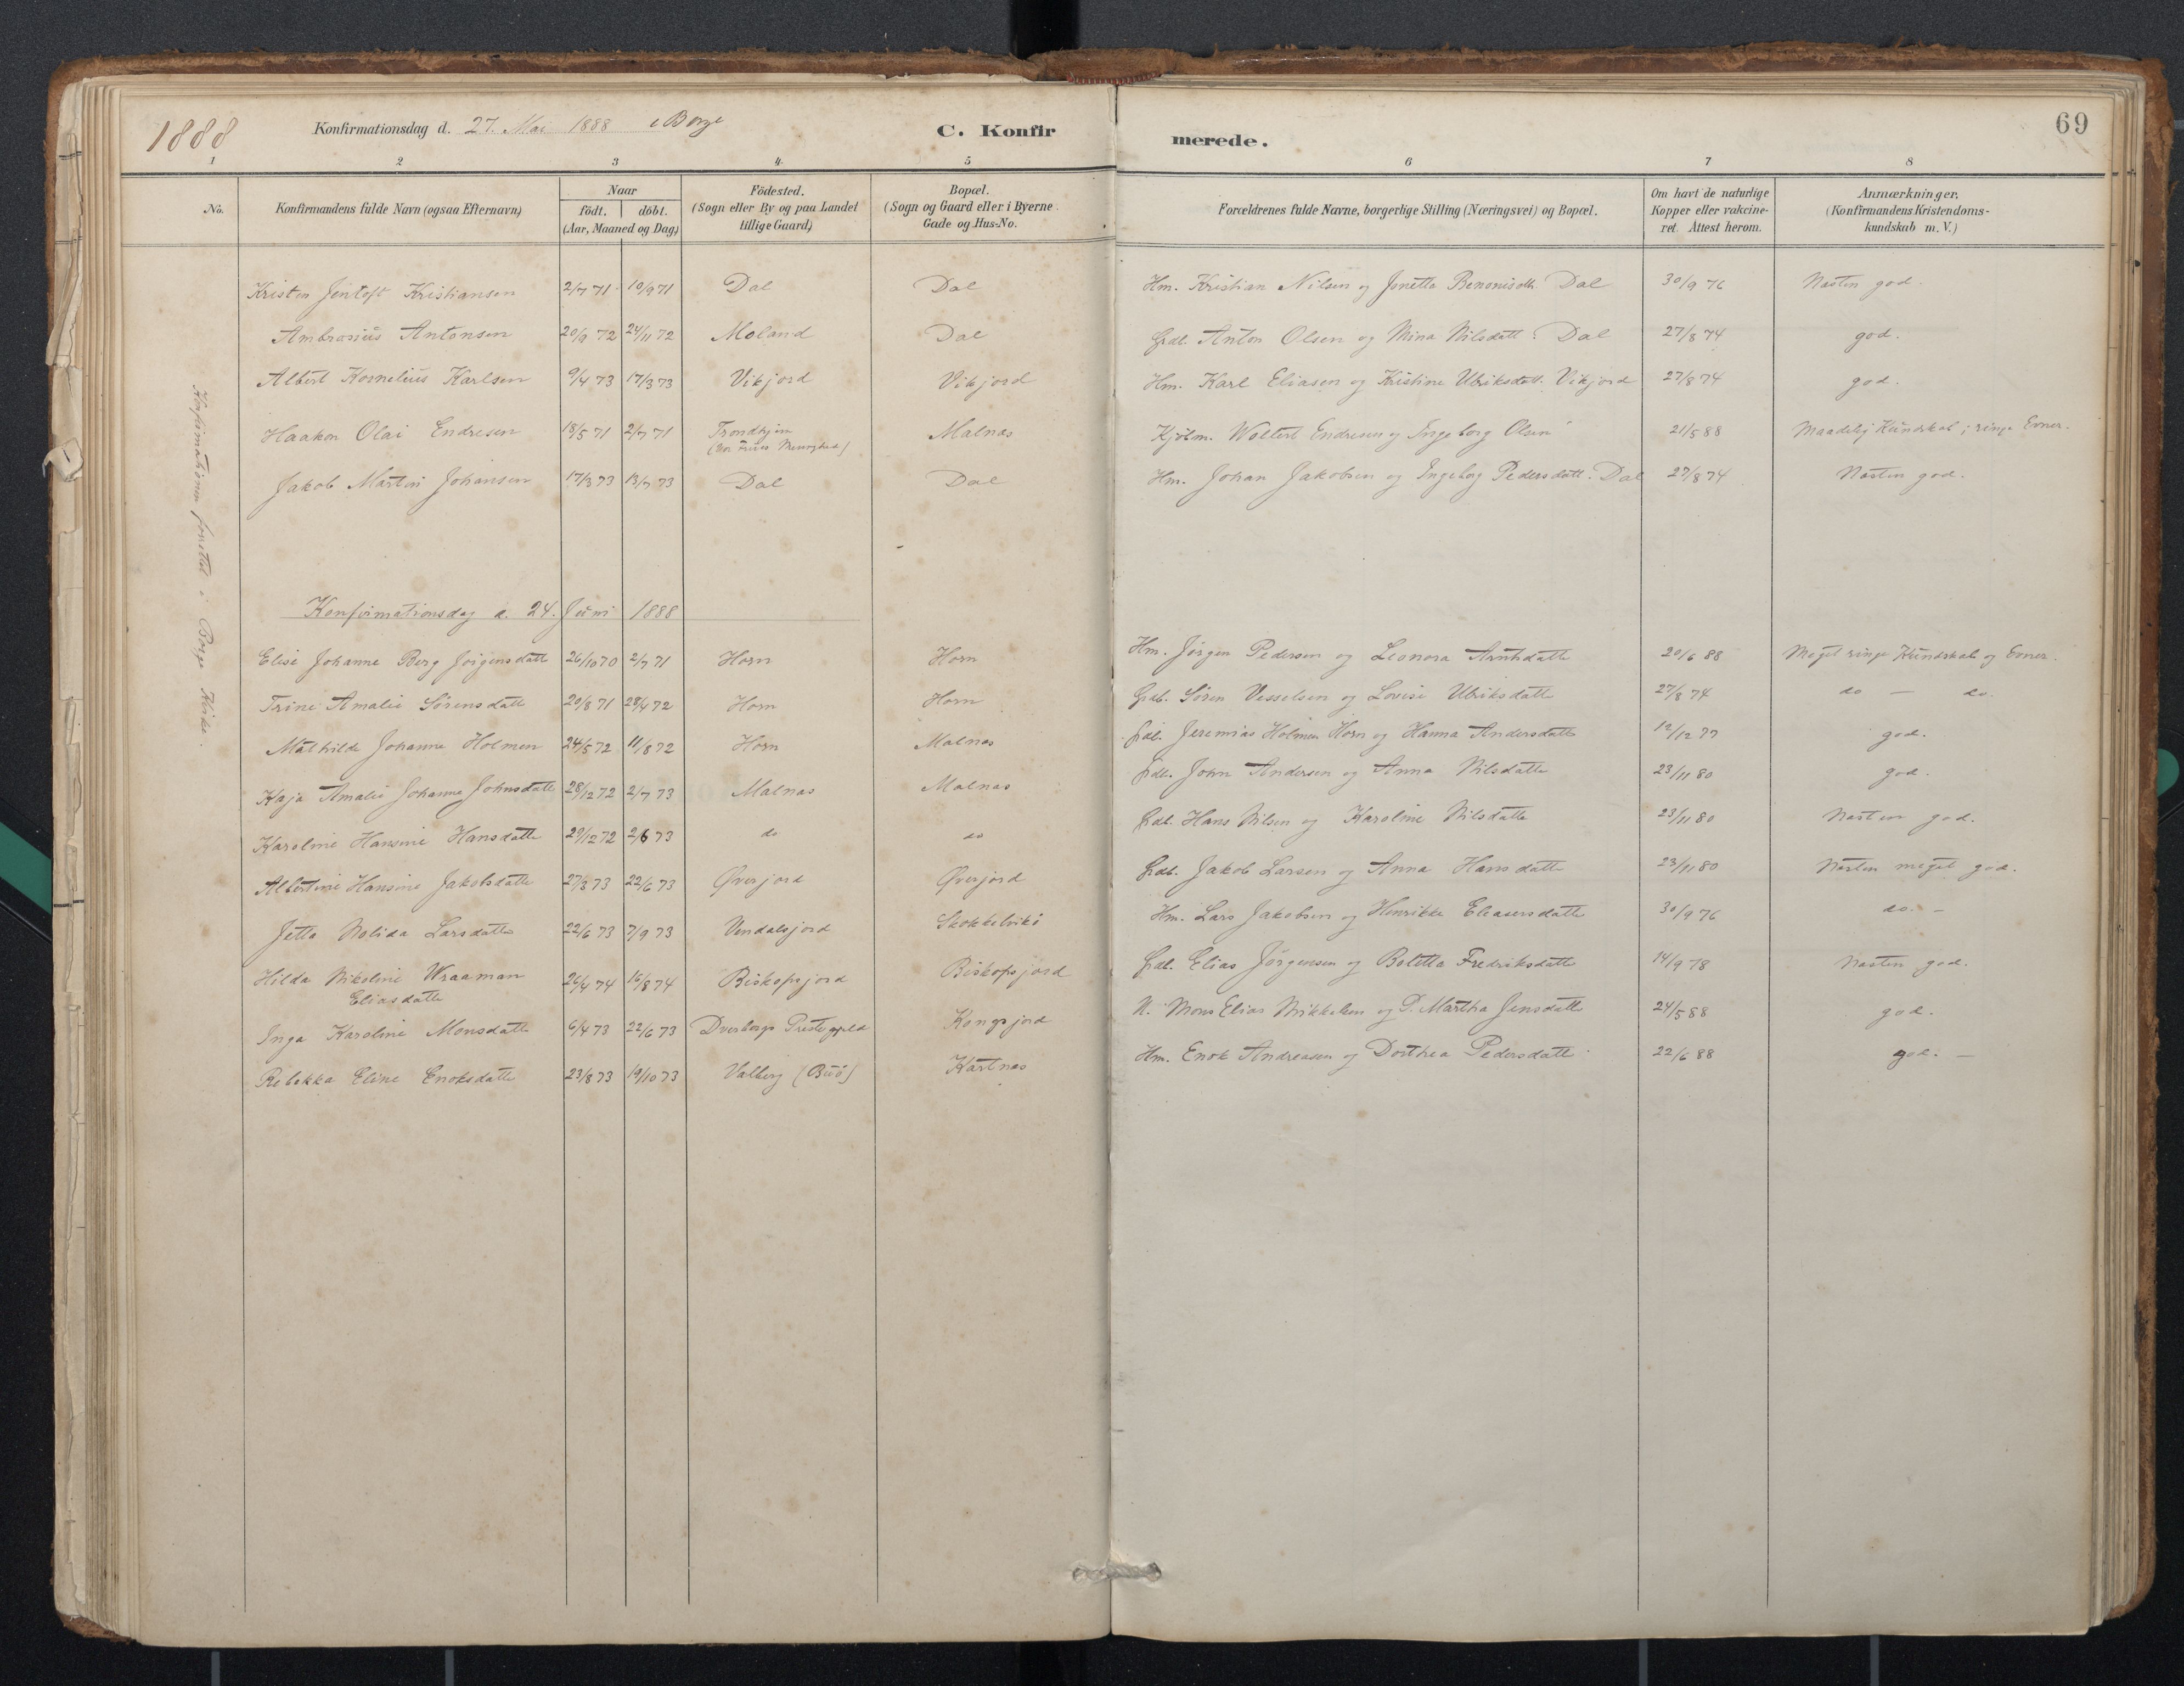 1888
Konfirmationsdag d. 27. Mai 1888 i Borge
C. Konfirmerede.
69
1 2 3 4 5 6 7 8
No.
Konfirmandens fulde Navn (ogsaa Efternavn)
Naar
födt. döbt.
(Aar, Maaned og Dag)
Födested.
(Sogn eller By og paa Landet
tillige Gaard)
Bopæl.
(Sogn og Gaard eller i Byerne
Gade og Hus-No.
Forældrenes fulde Navne, borgerlige Stilling (Næringsvei) og Bopæl.
Om havt de naturlige
Kopper eller vakcine-
ret. Attest herom.
Anmærkninger.
(Konfirmandens Kristendoms-
kundskab m. V.)
Kristen Jentoft Kristiansen 2/7 71 10/9 71 Dal Dal Hm. Kristian Nilsen og Jonetta Benonisdtt. Dal 30/9 76 Næsten god.
Ambrosius Antonsen 20/9 72 24/11 72 Moland Dal Gdb. Anton Olsen og Mina Nilsdatt. Dal 27/8 74 god.
Albert Kornelius Karlsen 9/4 73 17/3 73 Vikjord Vikjord Hm. Karl Eliasen og Kristine Ulriksdatt. Vikjord 27/8 74 god.
Haakon Olai Endresen 18/5 71 2/7 71 Trondhjem Malnæs Kjöbm. Woltert Endresen og Ingeborg Olsen 21/5 88 Maadelig Kundskab; ringe Evner.
(Vor Frues Menighed)
Jakob Martin Johansen 17/3 73 13/7 73 Dal Dal Hm. Johan Jakobsen og Ingeborg Pedersdatt. Dal 27/8 74 Næsten god.
Konfirmationen forrettet i Borge Kirke.
Konfirmationsdag d. 24. Juni 1888
Elise Johanne Berg Jörgensdatte 26/10 70 2/7 71 Horn Horn Hm. Jörgen Pedersen og Leonora Arntsdatte 20/6 88 Meget ringe Kundskab og Evner.
Trine Amalie Sörensdatte 20/8 71 28/4 72 Horn Horn Gdb. Sören Vesselsen og Lovise Ulriksdatte 27/8 74 do — do.
Mathilde Johanna Holmen 24/5 72 11/8 72 Horn Malnæs Gdb. Jeremias Holmen Horn og Hanna Andersdatte 12/12 77 god.
Kaja Amalie Johanne Johnsdatte 28/12 72 2/7 73 Malnæs Malnæs Gdb. John Andersen og Anna Nilsdatte 23/11 80 god.
Karoline Hansine Hansdatte 29/12 72 2/6 73 do do Gdb. Hans Nilsen og Karoline Nilsdatte 23/11 80 Næsten god.
Albertine Hansine Jakobsdatte 27/3 73 22/6 73 Øverjord Øverjord Gdb. Jakob Larsen og Anna Hansdatte 23/11 80 Næsten meget god.
Jetta Nolida Larsdatte 22/6 73 7/9 73 Vendalsjord Skokkelviki Hm. Lars Jakobsen og Henrikke Eleasersdatte 30/9 76 do. -
Hilda Nikoline Wraaman 26/4 74 16/8 74 Biskopsjord Biskopsjord Gdb. Elias Jörgensen og Boletta Fredriksdatte 14/9 78 Næsten god.
Eliasdatte
Inga Karoline Monsdatte 6/4 73 22/6 73 Dverbergs Prestegjeld Kongsjord N. Mons Elias Mikkelsen og P. Martha Jensdatte 24/5 88 god.
Rebekka Eline Enoksdatte 23/8 73 19/10 73 Valberg (Buö) Kartnæs Hm. Enok Andreasen og Dorthea Pedersdatte 22/6 88 god. —